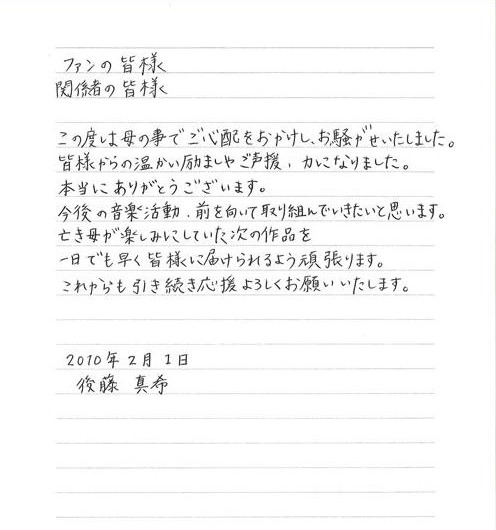 ファンの皆様
関係者の皆様
この度は母の事でご心配をおかけし、お騒がせいたしました。
皆様からの温かい励ましやご声援、力になりました。
本当にありがとうございます。
今後の音楽活動、前を向いて取り組んでいきたいと思います。
亡き母が楽しみにしていた次の作品を
一日でも早く皆様に届けられるよう頑張ります。
これからも引き続き応援よろしくお願いいたします。
2010年2月1日
後藤 真希